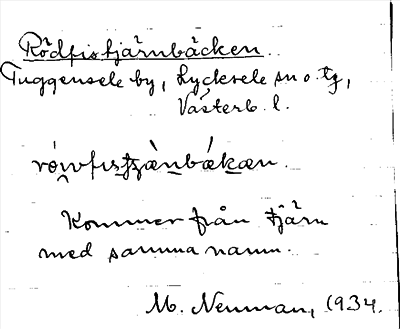 Rödfistjärnbäcken
Tuggensele by, Lycksele sn o. tg,
Västerb. l.
Kommer från tjärn
med samma namn.
M. Neuman, 1934.